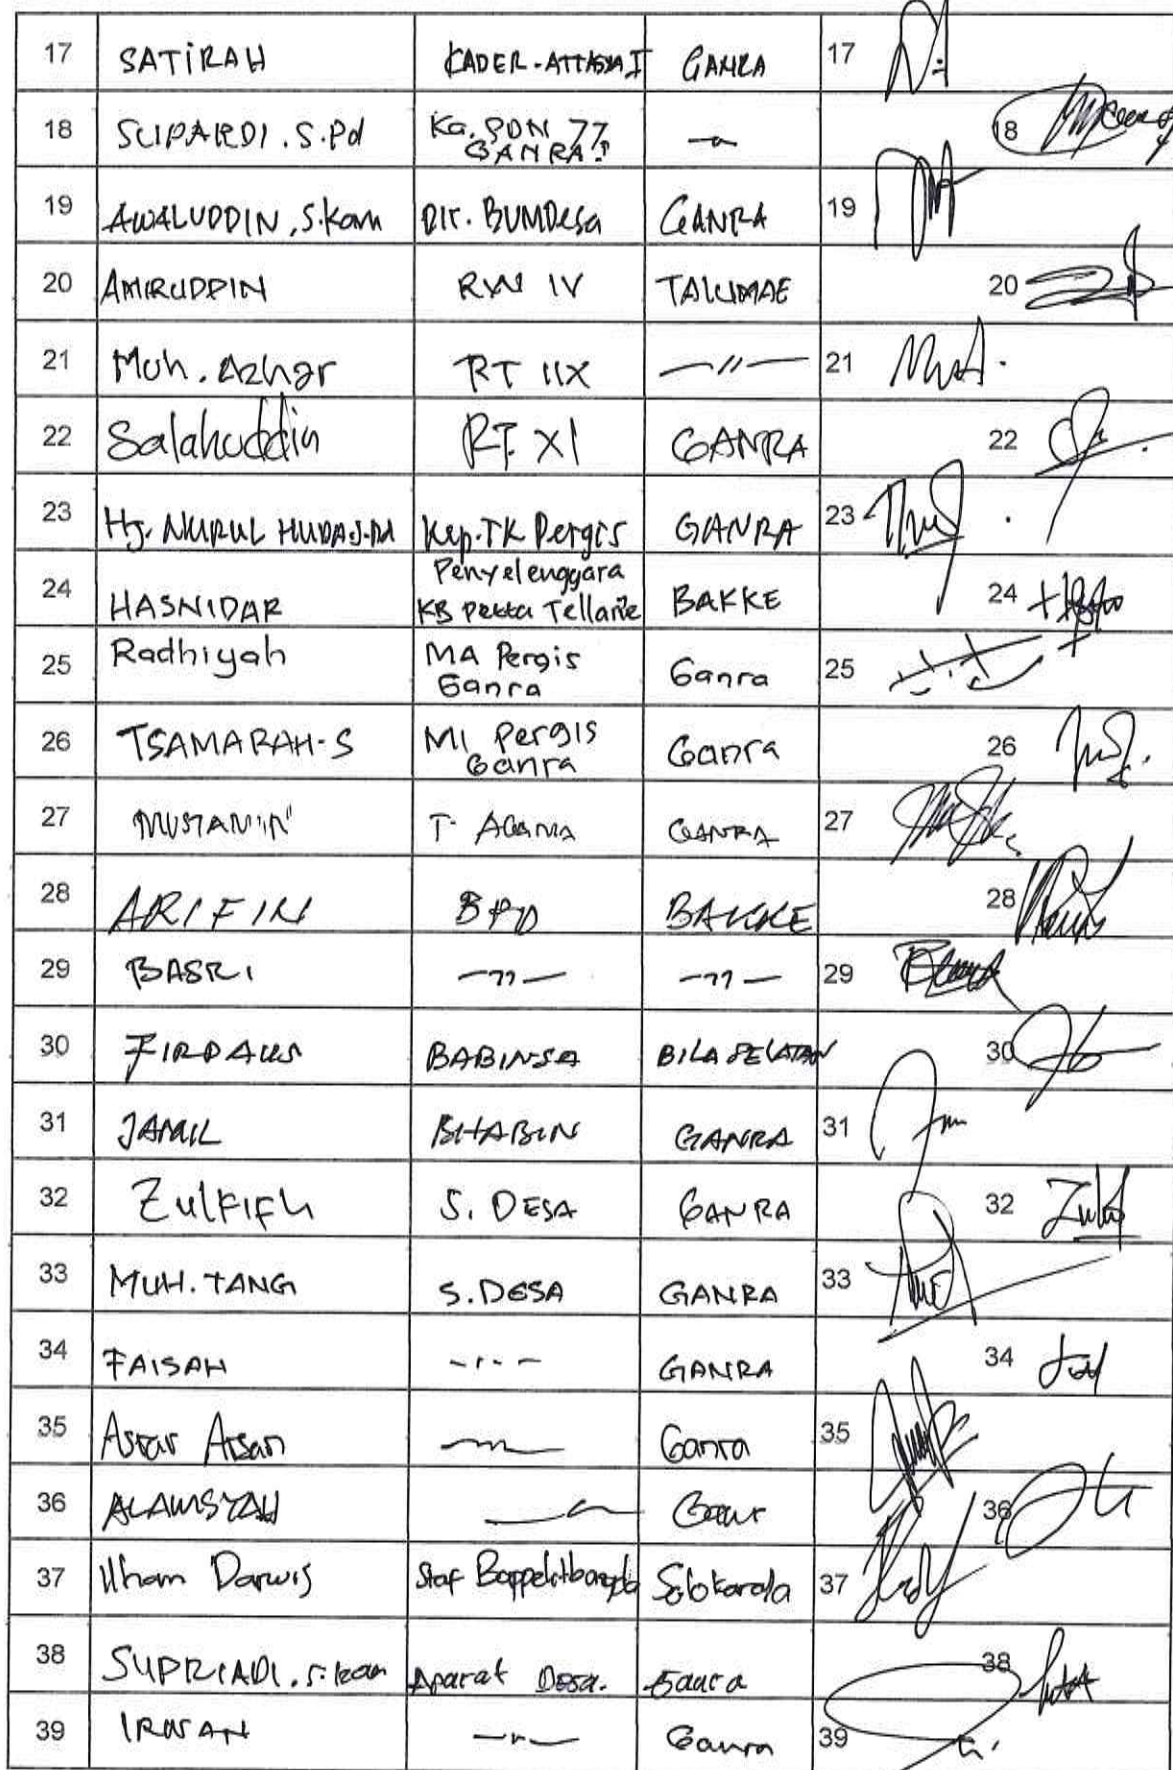 17 SATIRAH KADER-ATTASYA I GANRA 17
18 SUPARDI. S.Pd Ka. SDN 77 GANRA 18
19 AWALUDDIN, S.Kom Dir. BUMDesa GANRA 19
20 AMIRUDDIN RW IV TALUMAE 20
21 Muh. Azhar RT IIX —〃— 21
22 Salahuddin RT. XI GANRA 22
23 Hj. NURUL HUDA S.Pd Kep. TK Pergis GANRA 23
24 HASNIDAR Penyelenggara KB Petta Tellarie BAKKE 24
25 Radhiyah MA Pergis Ganra Ganra 25
26 TSAMARAH.S MI Pergis Ganra Ganra 26
27 MUSTAMIN T. AGAMA GANRA 27
28 ARIFIN BPD BAKKE 28
29 BASRI —〃— —〃— 29
30 FIRDAUS BABINSA BILA SELATAN 30
31 JAMIL BHABIN GANRA 31
32 ZulFIFLI S. DESA GANRA 32
33 MUH. TANG S. DESA GANRA 33
34 FAISAH GANRA 34
35 Ganra 35
36 ALAMSYAH 36
37 Ilham Darwis Staf Bappelitbangda 37
38 SUPRIADI. S.kom Aparat Desa. Ganra 38
39 IRWAN Ganra 39